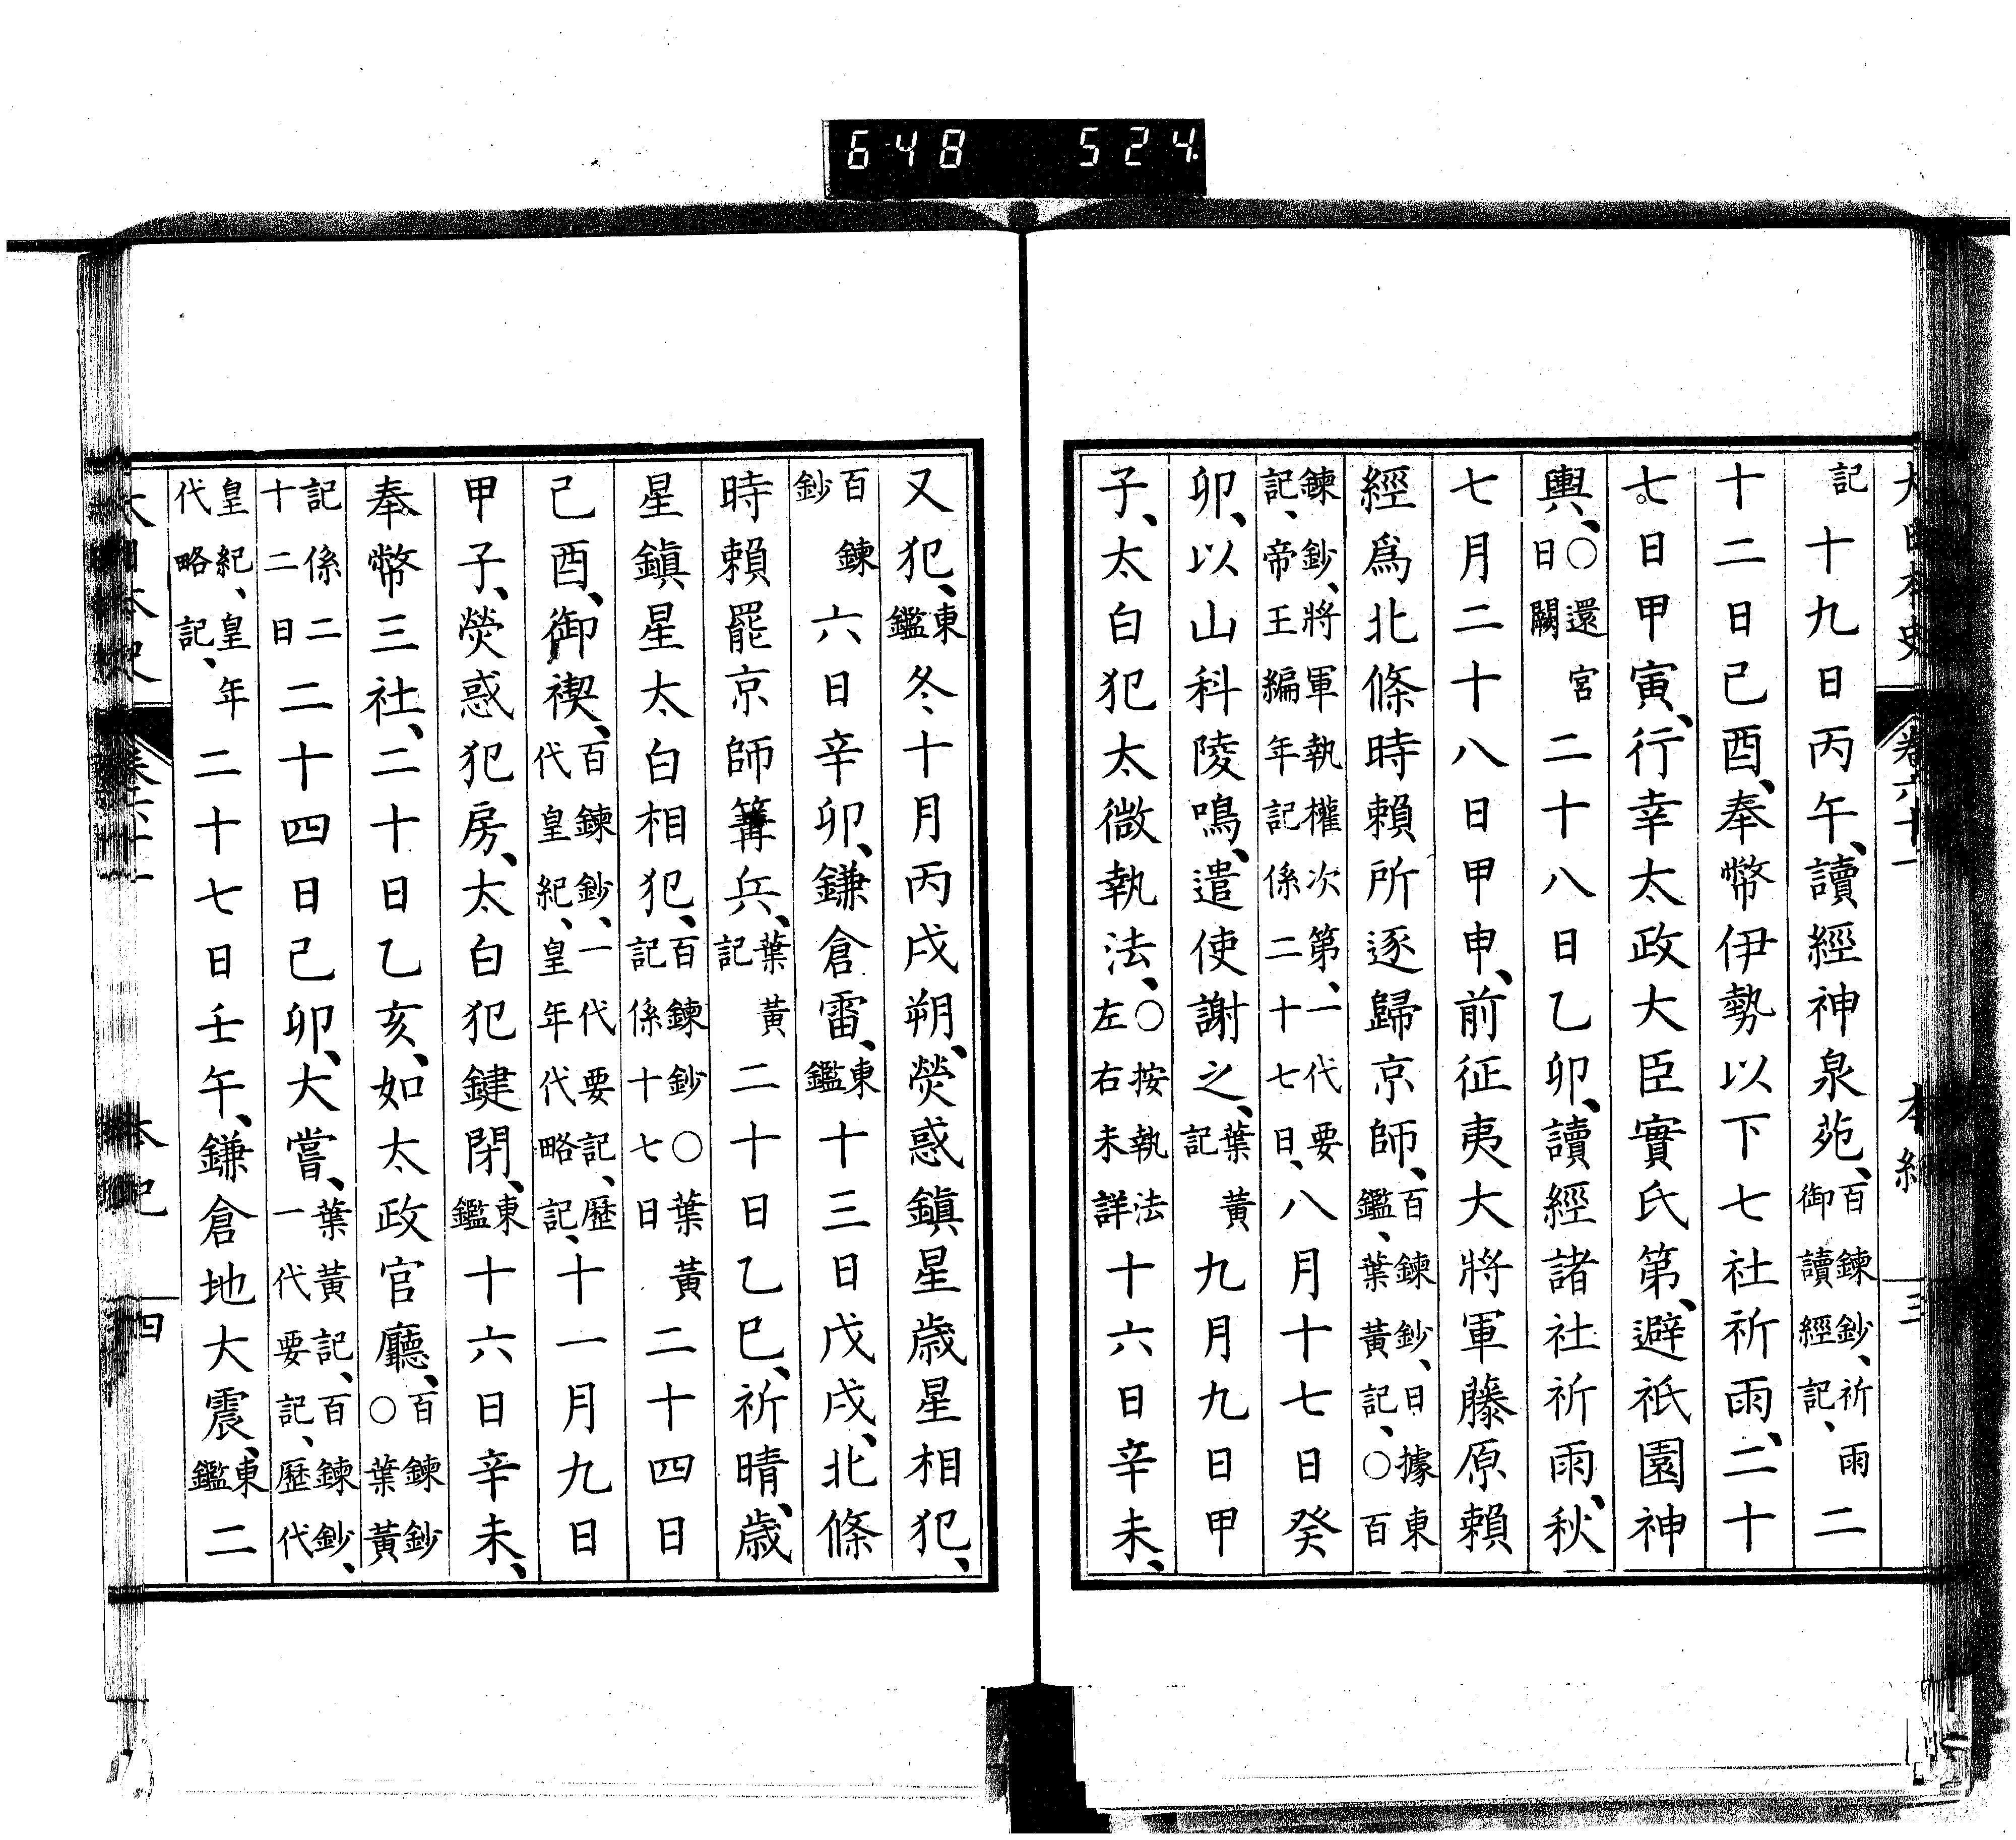 大日本史 卷六十一 本紀 三
記十九日丙午、讀經神泉苑、百鍊鈔、祈雨御讀經記、二
十二日己酉、奉幣伊勢以下七社祈雨、二十
七日甲寅、行幸太政大臣實氏第、避祇園神
輿、○還宮日闕二十八日乙卯、讀經諸社祈雨、秋、
七月二十八日甲申、前征夷大將軍藤原賴
經爲北條時賴所逐歸京師、百鍊鈔、日據東鑑、葉黃記、○百
鍊鈔、將軍執權次第、一代要記、帝王編年記係二十七日、八月十七日癸
卯、以山科陵鳴、遣使謝之、葉黃記九月九日甲
子、太白犯太微執法、○按執法左右未詳十六日辛未、
又犯、東鑑冬十月丙戌朔、熒惑鎮星歲星相犯、
百鍊鈔六日辛卯、鎌倉雷、東鑑十三日戊戌、北條
時賴罷京師篝兵、葉黃記二十日乙巳、祈晴、歲
星鎮星太白相犯、百鍊鈔○葉黃記係十七日二十四日
己酉、御禊、百鍊鈔、一代要記、歷代皇紀、皇年代略記、十一月九日
甲子、熒惑犯房、太白犯鍵閉、東鑑十六日辛未、
奉幣三社、二十日乙亥、如太政官廳、百鍊鈔○葉黃
記係二十二日二十四日己卯、大嘗、葉黃記、百鍊鈔、一代要記、歷代
皇紀、皇年代略記、二十七日壬午、鎌倉地大震、東鑑二
大日本史 卷六十一 本紀 四
648 524